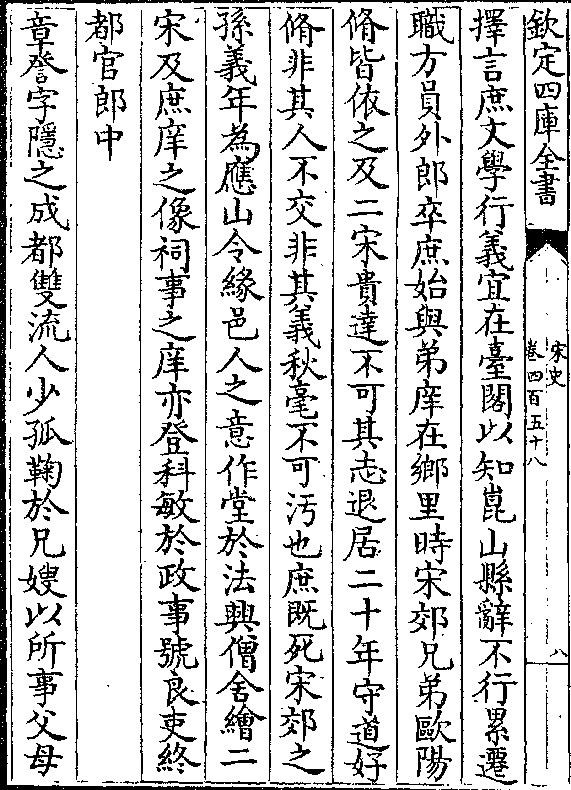 欽定四庫全書
宋史
卷四百五十八
八
擇言庶文學行義宜在臺閣以知崑山縣辭不行累遷
職方員外郎卒庶始與弟庠在鄉里時宋郊兄弟歐陽
脩皆依之及二宋貴達不可其志退居二十年守道好
脩非其人不交非其義秋毫不可污也庶既死宋郊之
孫義年為應山令緣邑人之意作堂於法興僧舍繪二
宋及庶庠之像祠事之庠亦登科敏於政事號良吏終
都官郎中
章詧字隱之成都雙流人少孤鞠於兄嫂以所事父母